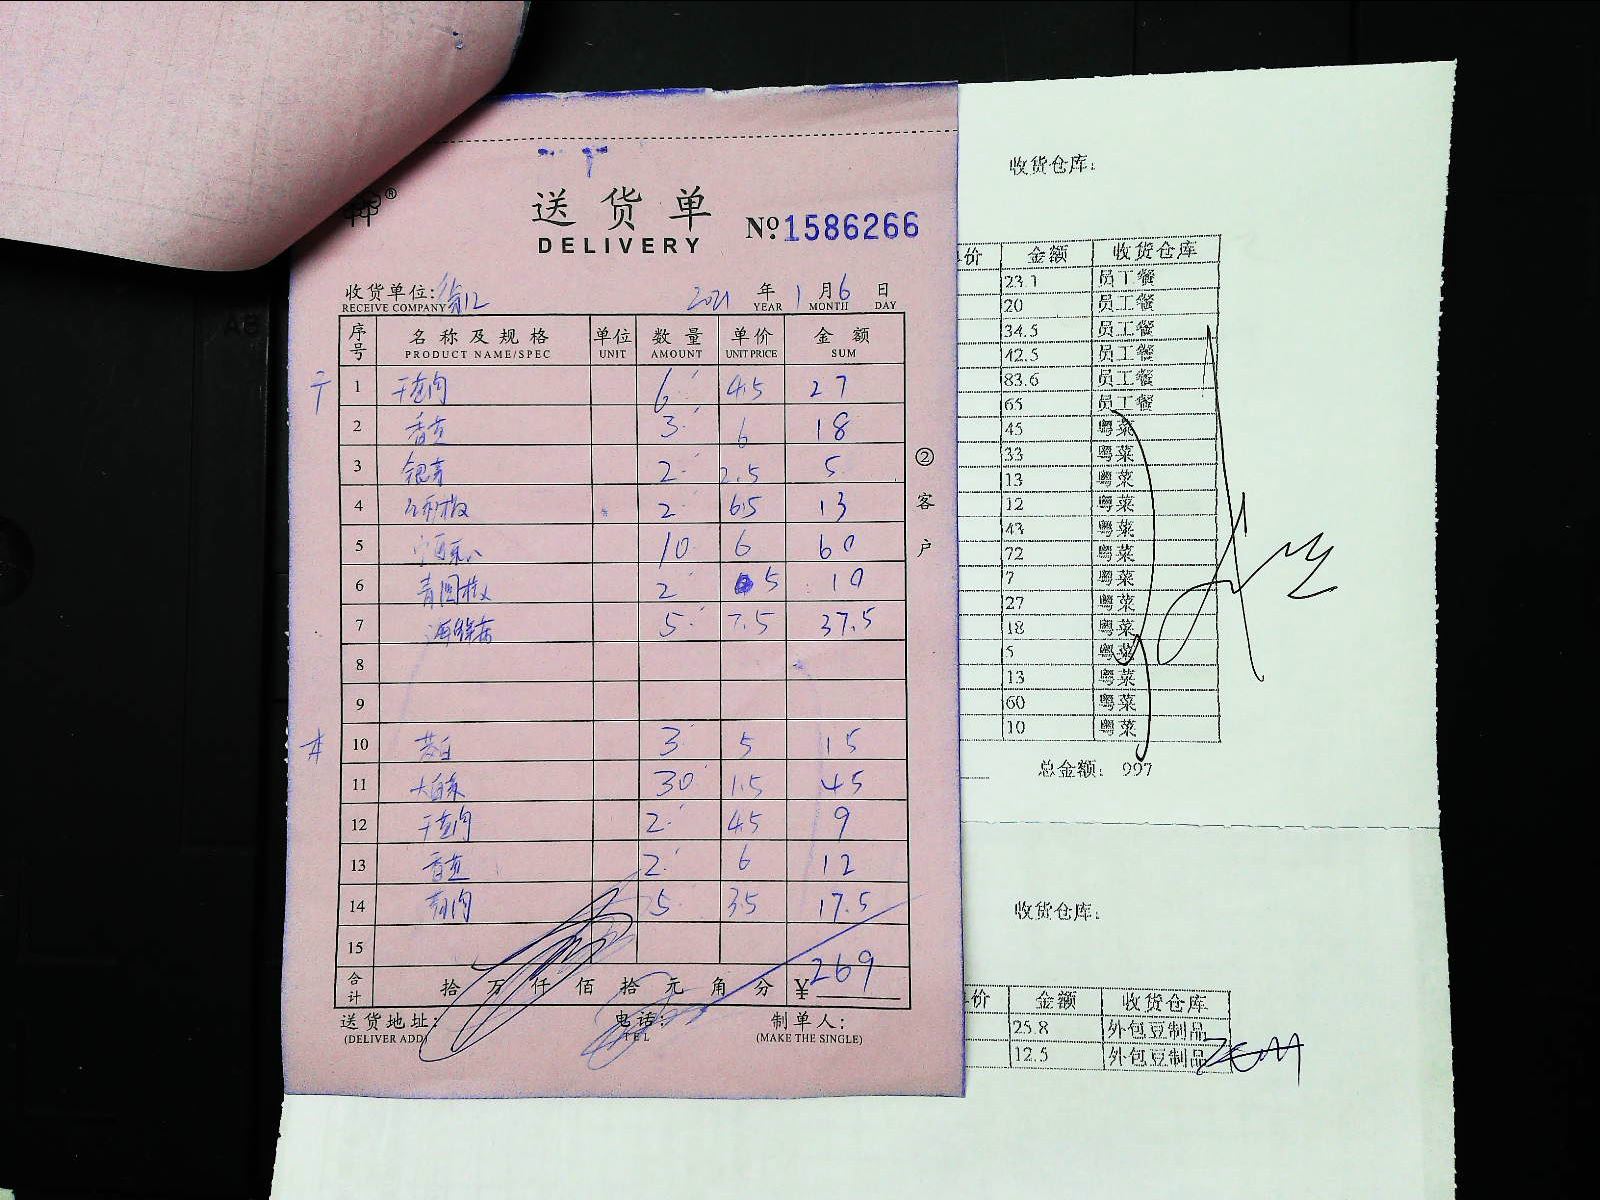 送货单
DELIVERY
№1586266
收货单位:
RECEIVE COMPANY
2021 年 1 月 6 日
YEAR MONTH DAY
序号 名称及规格 单位 数量 单价 金额
PRODUCT NAME/SPEC UNIT AMOUNT UNIT PRICE SUM
1 6 4.5 27
2 香芹 3 6 18
3 2 2.5 5
4 2 6.5 13
5 10 6 60
6 青圆椒 2 5 10
7 5 7.5 37.5
8
9
10 3 5 15
11 大白菜 30 1.5 45
12 2 4.5 9
13 2 6 12
14 5 3.5 17.5
15
合计 拾 万 仟 佰 拾 元 角 分 ¥269
送货地址: 电话: 制单人:
(DELIVER ADD) TEL (MAKE THE SINGLE)
②客户
收货仓库:
价 金额 收货仓库
23.1 员工餐
20 员工餐
34.5 员工餐
42.5 员工餐
83.6 员工餐
65 员工餐
45 粤菜
33 粤菜
13 粤菜
12 粤菜
43 粤菜
72 粤菜
7 粤菜
27 粤菜
18 粤菜
5 粤菜
13 粤菜
60 粤菜
10 粤菜
总金额: 997
收货仓库:
价 金额 收货仓库
25.8 外包豆制品
12.5 外包豆制品